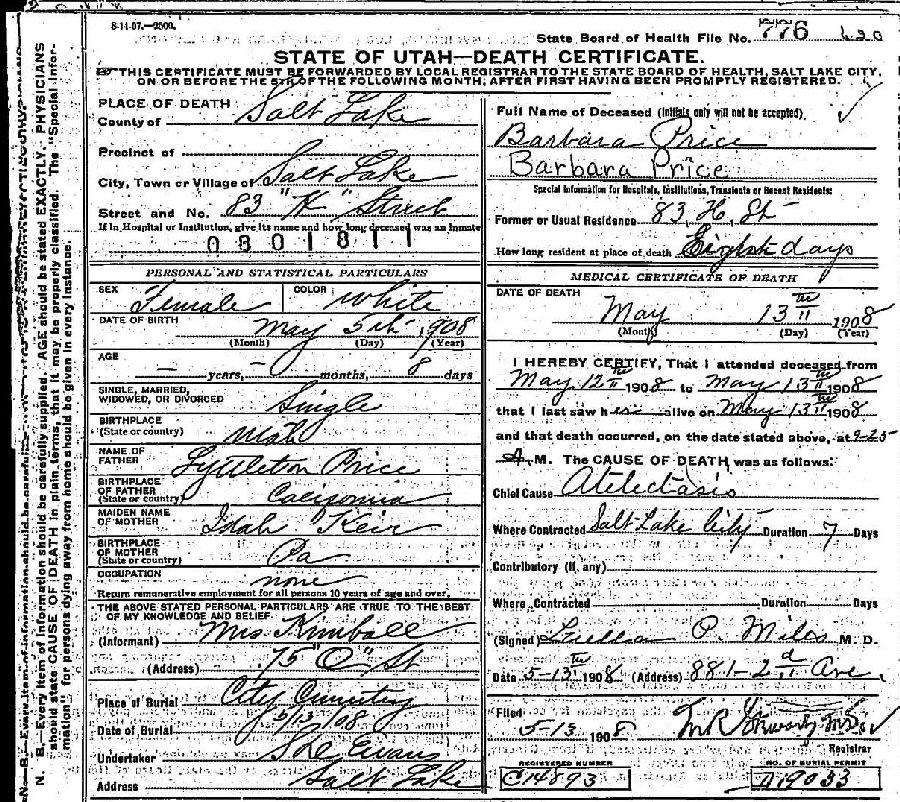 8-14-07.—2500.
State Board of Health File No. 776
STATE OF UTAH—DEATH CERTIFICATE.
THIS CERTIFICATE MUST BE FORWARDED BY LOCAL REGISTRAR TO THE STATE BOARD OF HEALTH, SALT LAKE CITY,
ON OR BEFORE THE 5TH OF THE FOLLOWING MONTH, AFTER FIRST HAVING BEEN PROMPTLY REGISTERED.
PLACE OF DEATH
County of Salt Lake
Precinct of
City, Town or Village of Salt Lake
Street and No. 83 "H" Street
If in Hospital or Institution, give its name and how long deceased was an inmate
0301811
PERSONAL AND STATISTICAL PARTICULARS
SEX Female COLOR white
DATE OF BIRTH May 5th 1908
(Month) (Day) (Year)
AGE — years, — months, 8 days
SINGLE, MARRIED,
WIDOWED, OR DIVORCED Single
BIRTHPLACE
(State or country) Utah
NAME OF
FATHER Lyttleton Price
BIRTHPLACE
OF FATHER
(State or country) California
MAIDEN NAME
OF MOTHER Idah Keir
BIRTHPLACE
OF MOTHER
(State or country) Pa
OCCUPATION none
Return remunerative employment for all persons 10 years of age and over.
THE ABOVE STATED PERSONAL PARTICULARS ARE TRUE TO THE BEST
OF MY KNOWLEDGE AND BELIEF
(Informant) Mrs Kimball
(Address) 75 "O" St
Place of Burial City Cemetery
Date of Burial 5/13/08
Undertaker Evans
Address Salt Lake
Full Name of Deceased (initials only will not be accepted)
Barbara Price
Barbara Price
Special Information for Hospitals, Institutions, Transients or Recent Residents:
Former or Usual Residence 83 H. St
How long resident at place of death Eight days
MEDICAL CERTIFICATE OF DEATH
DATE OF DEATH
May 13th 1908
(Month) (Day) (Year)
I HEREBY CERTIFY, That I attended deceased from
May 12th 1908 to May 13th 1908
that I last saw her alive on May 13th 1908
and that death occurred, on the date stated above, at 9-25
A. M. The CAUSE OF DEATH was as follows:
Chief Cause Atelectasis
Where Contracted Salt Lake City Duration 7 Days
Contributory (If any)
Where Contracted Duration Days
(Signed) Luella P. Miles M. D.
Date 5-13th 1908 (Address) 881-2nd Ave.
Filed 5-13 1908
Registrar
REGISTERED NUMBER
C14893
NO. OF BURIAL PERMIT
A19033
N. B.—Every item of information should be carefully supplied. AGE should be stated EXACTLY. PHYSICIANS
should state CAUSE OF DEATH in plain terms, that it may be properly classified. The "Special Infor-
mation" for persons dying away from home should be given in every instance.